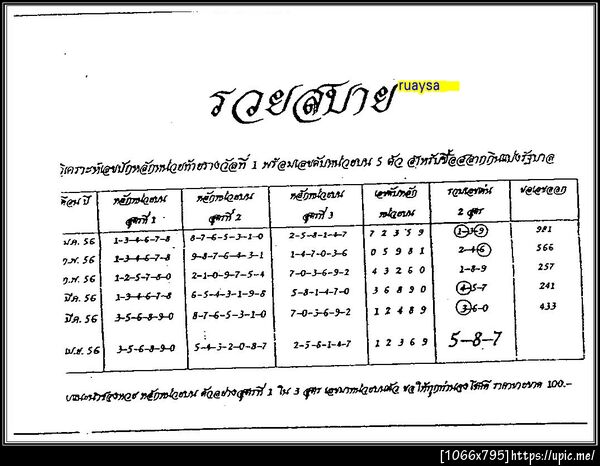 รวยสบาย
ruaysa
วิเคราะห์เลขปักหลักหน่วยท้ายรางวัลที่ 1 พร้อมเลขดับหน่วยบน 5 ตัว สำหรับซื้อสลากกินแบ่งรัฐบาล
เดือน ปี หลักหน่วยบน หลักหน่วยบน หลักหน่วยบน เลขดับหลัก รวมเลขเด่น ผลเลขออก
สูตรที่ 1 สูตรที่ 2 สูตรที่ 3 หน่วยบน 2 สูตร
ม.ค. 56 1-3-4-6-7-8 8-7-6-5-3-1-0 2-5-8-1-4-7 7 2 3 5 9 1-3-9 981
ก.พ. 56 1-3-4-6-7-8 9-8-7-6-4-3-1 1-4-7-0-3-6 0 5 9 8 1 2-4-6 566
ก.พ. 56 1-2-5-7-8-0 2-1-0-9-7-5-4 7-0-3-6-9-2 4 3 2 6 0 1-8-9 257
มี.ค. 56 1-3-4-6-7-8 6-5-4-3-1-9-8 5-8-1-4-7-0 3 6 8 9 0 4-5-7 241
มี.ค. 56 3-5-6-8-9-0 8-7-6-5-3-1-0 7-0-3-6-9-2 1 2 4 8 9 3-6-0 433
เม.ย. 56 3-5-6-8-9-0 5-4-3-2-0-8-7 2-5-8-1-4-7 1 2 3 6 9 5-8-7
หลักหน่วยบน ตัวอย่างสูตรที่ 1 ใน 3 สูตร ขอให้ทุกท่านจงโชคดี ราคาขายขาด 100.-
[1066x795]https://upic.me/